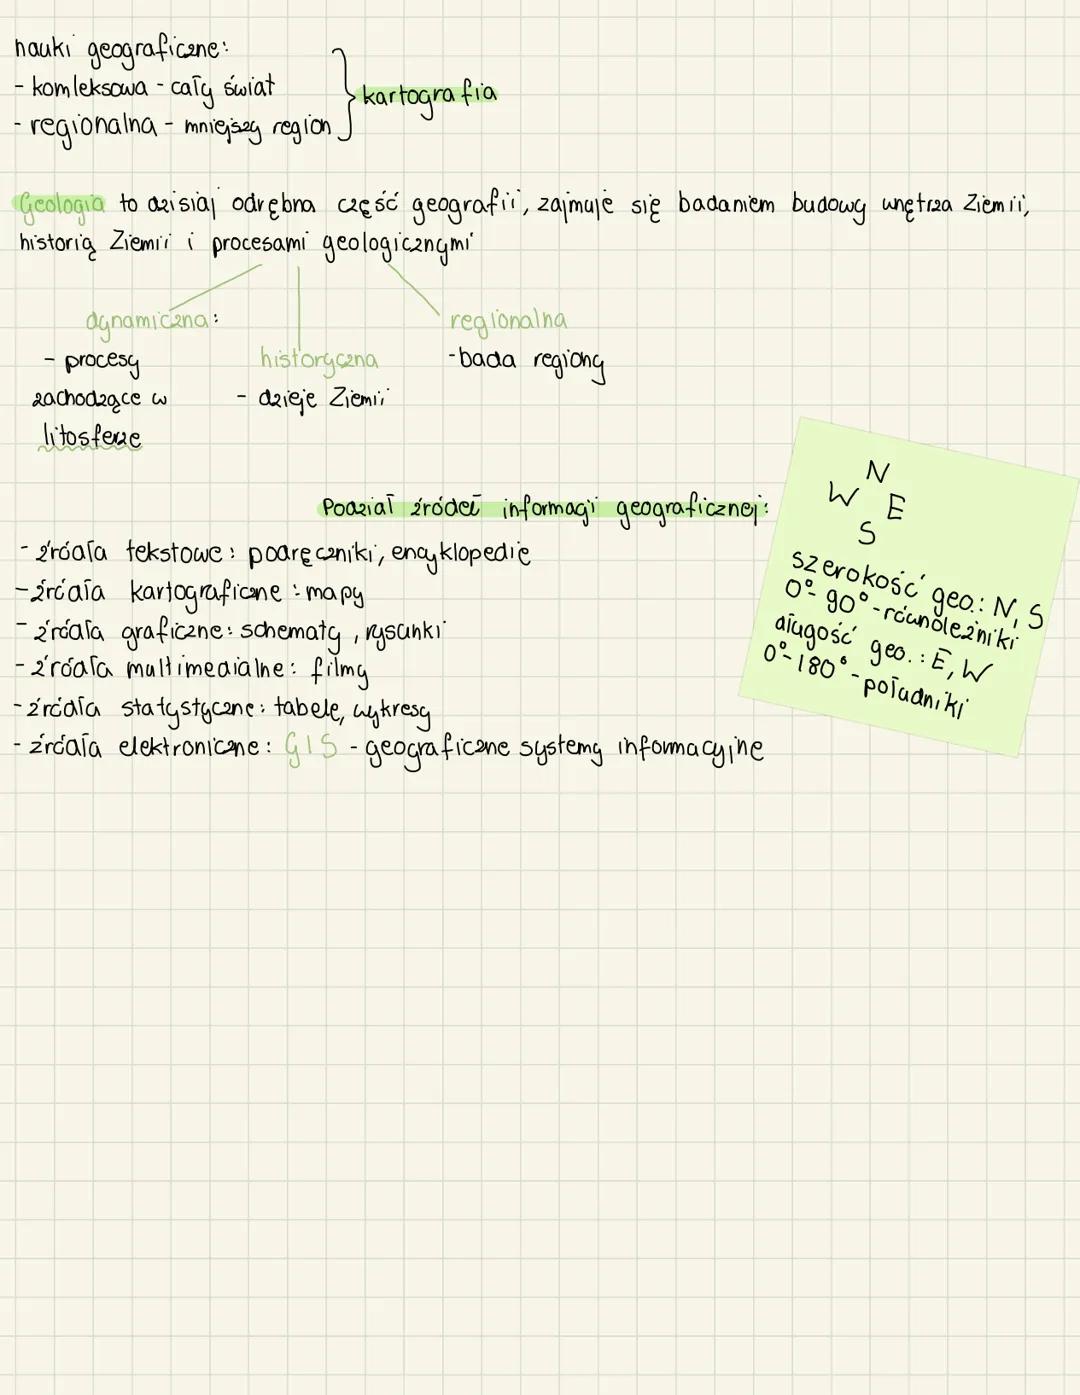 nauki geograficzne:
- komleksowa - cały świat
- regionalna - mniejszy region
kartografia
Geologia to dzisiaj odrębna część geografii, zajmuje się badaniem budowy wnętrza Ziemii,
historią Ziemii i procesami geologicznymi
dynamiczna:
- procesy
zachodzące w
litosferze
historyczna
- dzieje Ziemii
regionalna
- bada regiony
Podział źródeł informacji geograficznej:
- źródła tekstowe: podręczniki, encyklopedie
- źródła kartograficzne: mapy
- źródła graficzne: schematy, rysunki
- źródła multimedialne: filmy
- źródła statystyczne: tabele, wykresy
- źródła elektroniczne: GIS - geograficzne systemy informacyjne
N
W E
S
szerokość geo.: N, S
0°-90° - równoleżniki
długość geo.: E, W
0°-180° - południki